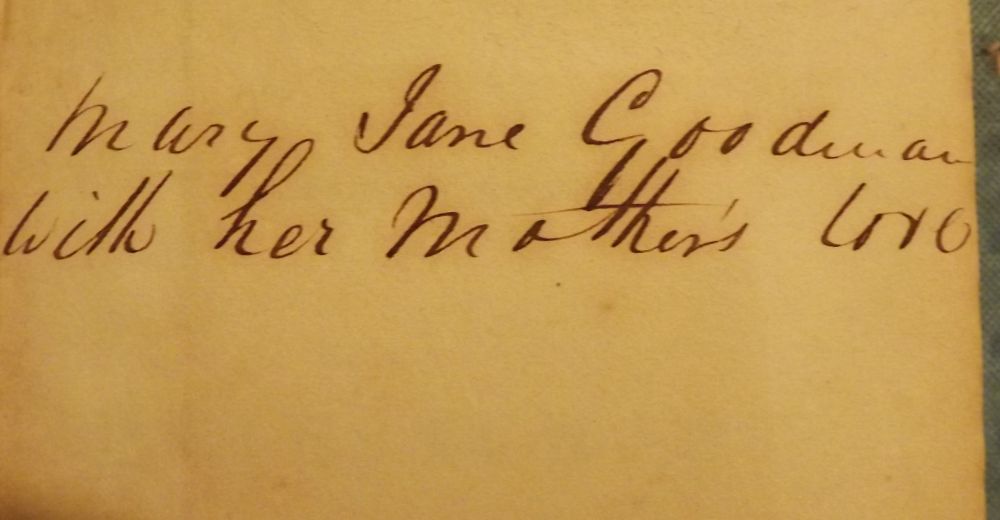 Mary Jane Goodman
With her Mother's love